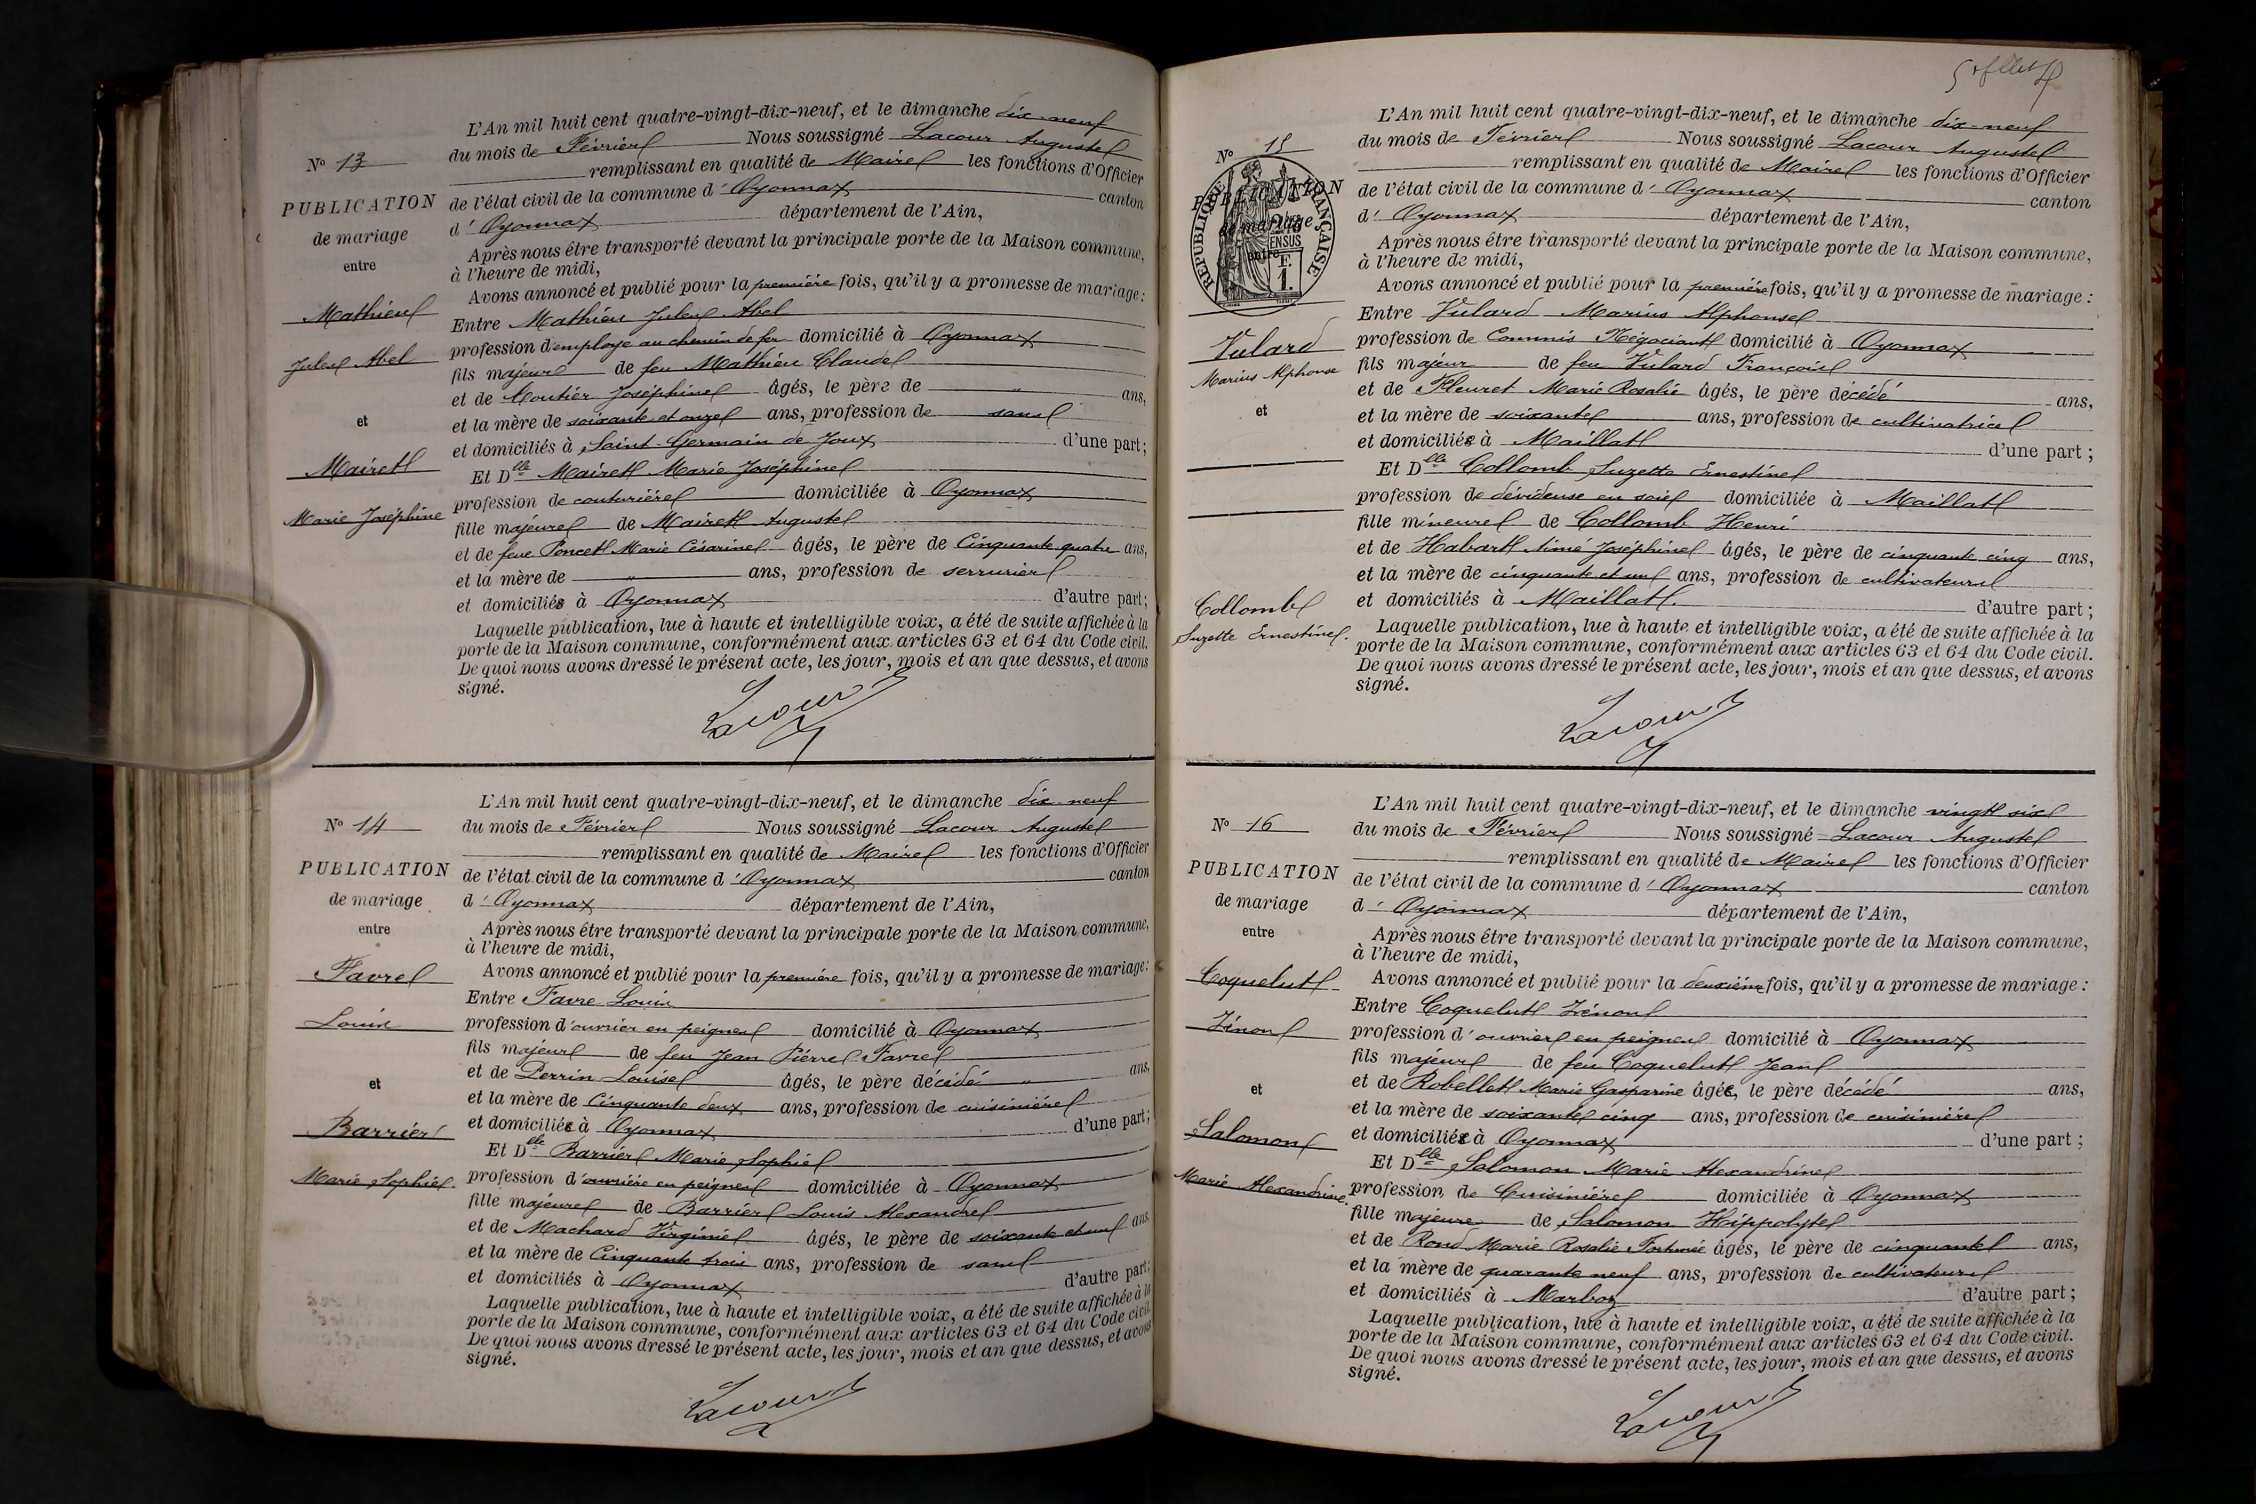 N° 13
PUBLICATION
de mariage
entre
Mathieu
Jules Abel
et
Mairet
Marie Joséphine
L'An mil huit cent quatre-vingt-dix-neuf, et le dimanche dix-neuf
du mois de Février Nous soussigné Lacour Auguste
remplissant en qualité de Maire les fonctions d'Officier
de l'état civil de la commune d' Oyonnax canton
d' Oyonnax département de l'Ain,
Après nous être transporté devant la principale porte de la Maison commune,
à l'heure de midi,
Avons annoncé et publié pour la première fois, qu'il y a promesse de mariage :
Entre Mathieu Jules Abel
profession d'employé au chemin de fer domicilié à Oyonnax
fils majeur de feu Mathieu Claude
et de Moutier Joséphine âgés, le père de " ans,
et la mère de soixante et onze ans, profession de sans
et domiciliés à Saint-Germain de Joux d'une part ;
Et Dlle Mairet Marie Joséphine
profession de couturière domiciliée à Oyonnax
fille majeure de Mairet Auguste
et de feue Poncet Marie Césarine âgés, le père de Cinquante quatre ans,
et la mère de " ans, profession de serrurier
et domiciliés à Oyonnax d'autre part ;
Laquelle publication, lue à haute et intelligible voix, a été de suite affichée à la
porte de la Maison commune, conformément aux articles 63 et 64 du Code civil.
De quoi nous avons dressé le présent acte, les jour, mois et an que dessus, et avons
signé.
Lacour
N° 14
PUBLICATION
de mariage
entre
Favre
Louis
et
Barrier
Marie Sophie
L'An mil huit cent quatre-vingt-dix-neuf, et le dimanche dix-neuf
du mois de Février Nous soussigné Lacour Auguste
remplissant en qualité de Maire les fonctions d'Officier
de l'état civil de la commune d' Oyonnax canton
d' Oyonnax département de l'Ain,
Après nous être transporté devant la principale porte de la Maison commune,
à l'heure de midi,
Avons annoncé et publié pour la première fois, qu'il y a promesse de mariage :
Entre Favre Louis
profession d'ouvrier en peignes domicilié à Oyonnax
fils majeur de feu Jean Pierre Favre
et de Perrin Louise âgés, le père décédé " ans,
et la mère de Cinquante deux ans, profession de cuisinière
et domiciliés à Oyonnax d'une part ;
Et Dlle Barrier Marie Sophie
profession d'ouvrière en peignes domiciliée à Oyonnax
fille majeure de Barrier Louis Alexandre
et de Machard Virginie âgés, le père de soixante et un ans,
et la mère de Cinquante trois ans, profession de sans
et domiciliés à Oyonnax d'autre part ;
Laquelle publication, lue à haute et intelligible voix, a été de suite affichée à la
porte de la Maison commune, conformément aux articles 63 et 64 du Code civil.
De quoi nous avons dressé le présent acte, les jour, mois et an que dessus, et avons
signé.
Lacour
N° 15
PUBLICATION
de mariage
entre
RÉPUBLIQUE FRANÇAISE
F.
1.
Vulard
Marius Alphonse
et
Collomb
Suzette Ernestine.
L'An mil huit cent quatre-vingt-dix-neuf, et le dimanche dix-neuf
du mois de Février Nous soussigné Lacour Auguste
remplissant en qualité de Maire les fonctions d'Officier
de l'état civil de la commune d' Oyonnax canton
d' Oyonnax département de l'Ain,
Après nous être transporté devant la principale porte de la Maison commune,
à l'heure de midi,
Avons annoncé et publié pour la première fois, qu'il y a promesse de mariage :
Entre Vulard Marius Alphonse
profession de Commis Négociant domicilié à Oyonnax
fils majeur de feu Vulard François
et de Fleuret Marie Rosalie âgés, le père décédé ans,
et la mère de soixante ans, profession de cultivatrice
et domiciliés à Maillat d'une part ;
Et Dlle Collomb Suzette Ernestine
profession de dévideuse en soie domiciliée à Maillat
fille mineure de Collomb Henri
et de Habart Aimé Joséphine âgés, le père de cinquante cinq ans,
et la mère de cinquante et un ans, profession de cultivateurs
et domiciliés à Maillat. d'autre part ;
Laquelle publication, lue à haute et intelligible voix, a été de suite affichée à la
porte de la Maison commune, conformément aux articles 63 et 64 du Code civil.
De quoi nous avons dressé le présent acte, les jour, mois et an que dessus, et avons
signé.
Lacour
N° 16
PUBLICATION
de mariage
entre
Coquelut
Zénon
et
Salomon
Marie Alexandrine
L'An mil huit cent quatre-vingt-dix-neuf, et le dimanche vingt six
du mois de Février Nous soussigné Lacour Auguste
remplissant en qualité de Maire les fonctions d'Officier
de l'état civil de la commune d' Oyonnax canton
d' Oyonnax département de l'Ain,
Après nous être transporté devant la principale porte de la Maison commune,
à l'heure de midi,
Avons annoncé et publié pour la deuxième fois, qu'il y a promesse de mariage :
Entre Coquelut Zénon
profession d'ouvrier en peignes domicilié à Oyonnax
fils majeur de feu Coquelut Jean
et de Robellet Marie Gasparine âgés, le père décédé ans,
et la mère de soixante cinq ans, profession de cuisinière
et domiciliés à Oyonnax d'une part ;
Et Dlle Salomon Marie Alexandrine
profession de Cuisinière domiciliée à Oyonnax
fille majeure de Salomon Hippolyte
et de Rond Marie Rosalie Fortunée âgés, le père de cinquante ans,
et la mère de quarante neuf ans, profession de cultivateurs
et domiciliés à Marboz d'autre part ;
Laquelle publication, lue à haute et intelligible voix, a été de suite affichée à la
porte de la Maison commune, conformément aux articles 63 et 64 du Code civil.
De quoi nous avons dressé le présent acte, les jour, mois et an que dessus, et avons
signé.
Lacour